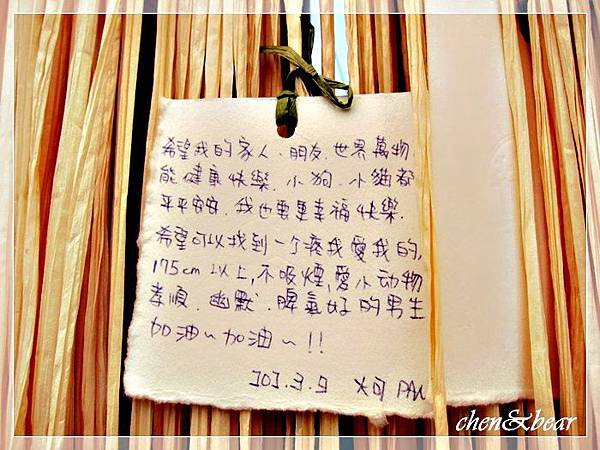 希望我的家人、朋友、世界萬物
能健康快樂、小狗、小貓都
平平安安、我也要幸福快樂.
希望可以找到一个疼我愛我的,
175cm以上,不吸煙,愛小动物
孝順、幽默、脾氣好的男生
加油~加油~!!
101.3.9 PAN
chen&bear